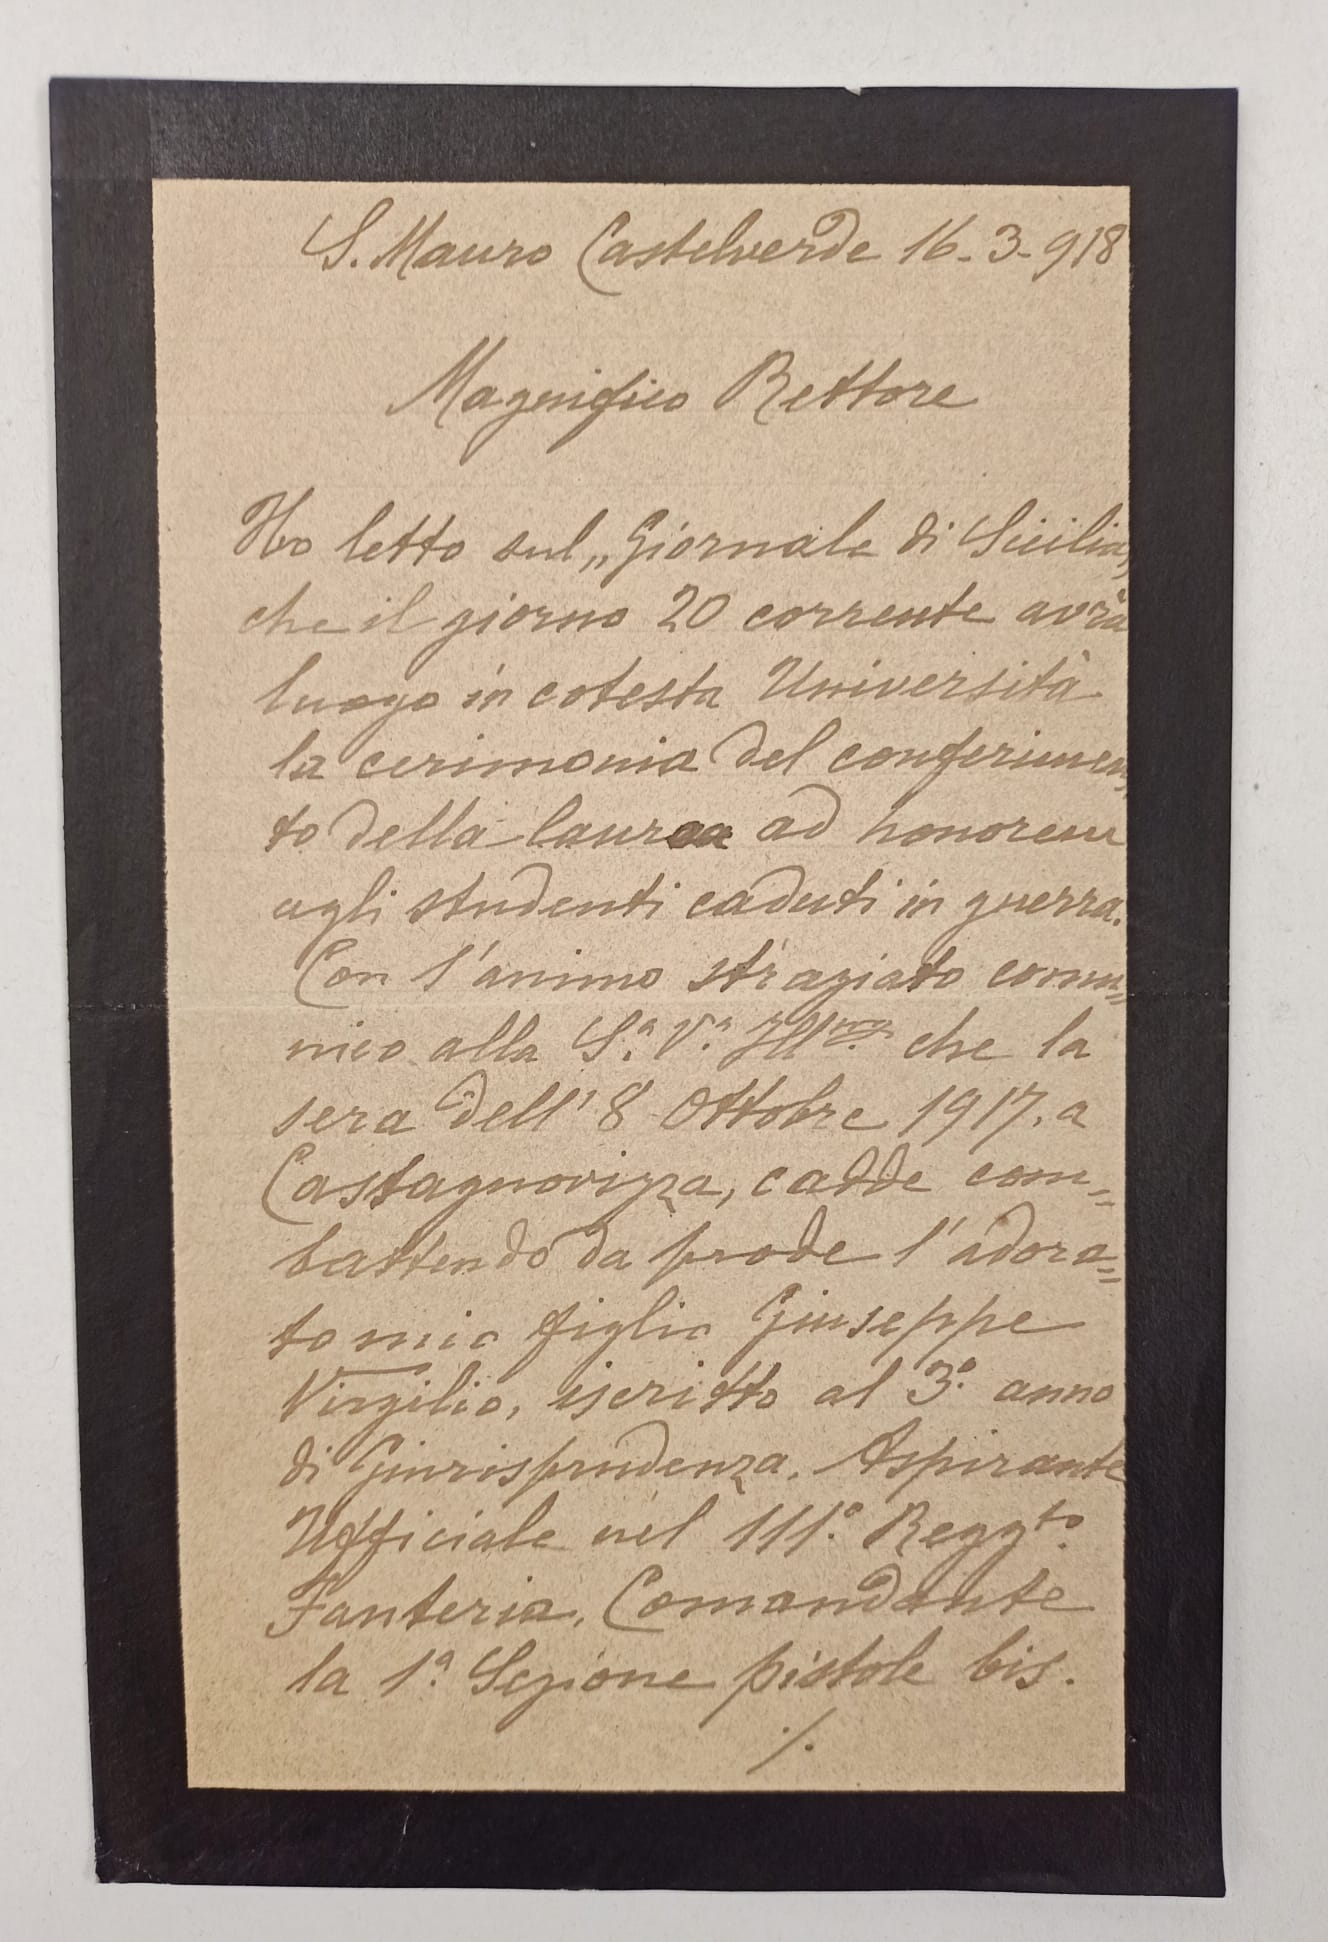 S. Mauro Castelverde 16-3-918
Magnifico Rettore
Ho letto sul „Giornale di Sicilia„
che il giorno 20 corrente avrà
luogo in cotesta Università
la cerimonia del conferimen„
to della laurea ad honorem
agli studenti caduti in guerra.
Con l'animo straziato comu=
nico alla S.ª V.ª Ill.ma che la
sera dell' 8 Ottobre 1917. a
Castagnovizza, cadde com=
battendo da prode l'adora=
to mio figlio Giuseppe
Virgilio, iscritto al 3.º anno
di Giurisprudenza. Aspirante
Ufficiale nel 111.º Regg.to
Fanteria. Comandante
la 1.ª Sezione pistole bis.
./.